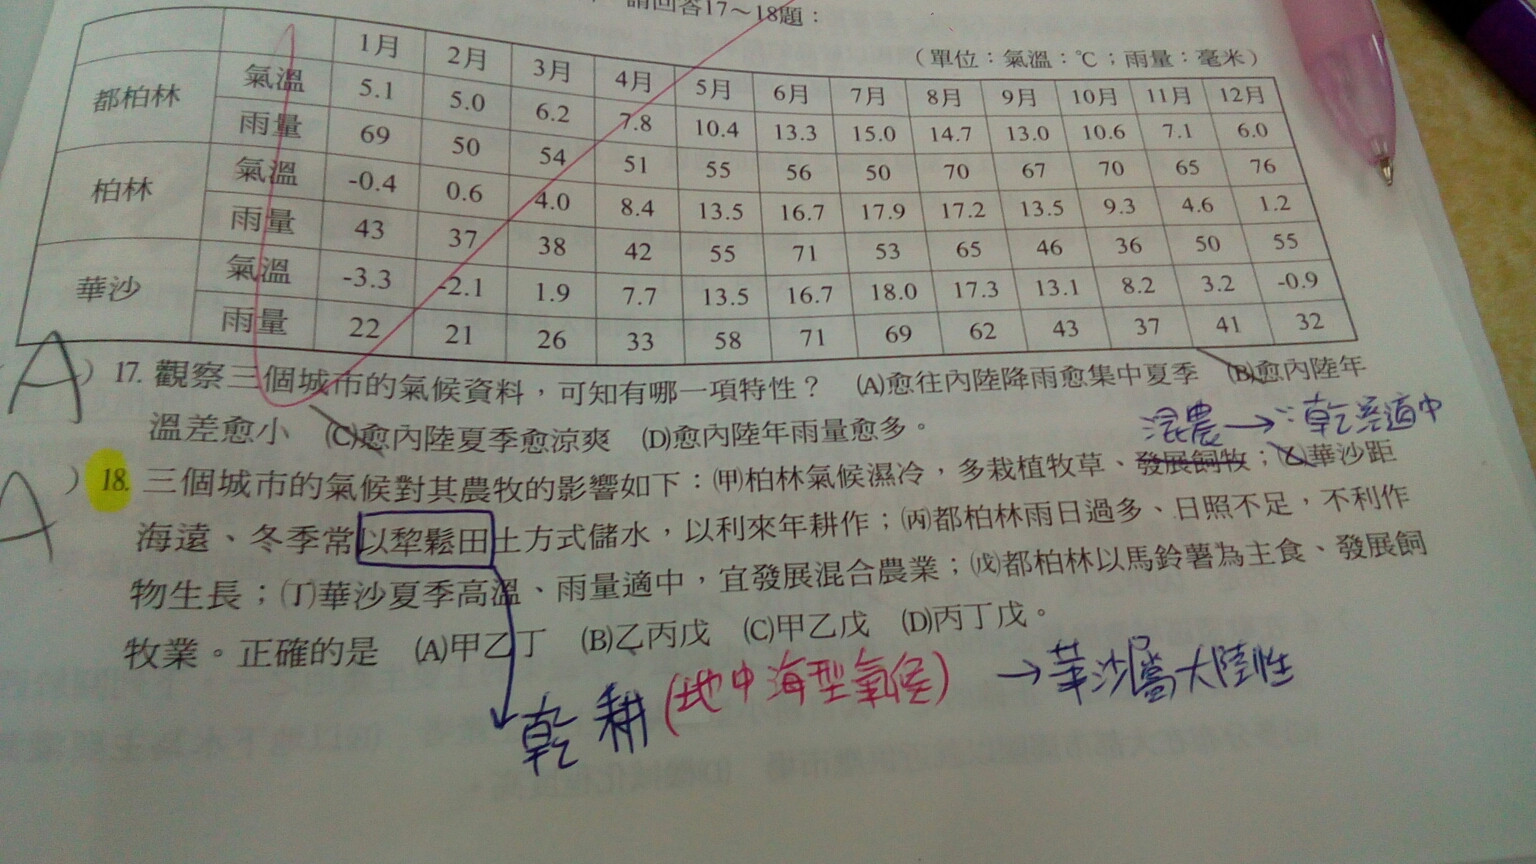 請回答17～18題：
（單位：氣溫：℃；雨量：毫米）
1月 2月 3月 4月 5月 6月 7月 8月 9月 10月 11月 12月
都柏林 氣溫 5.1 5.0 6.2 7.8 10.4 13.3 15.0 14.7 13.0 10.6 7.1 6.0
雨量 69 50 54 51 55 56 50 70 67 70 65 76
柏林 氣溫 -0.4 0.6 4.0 8.4 13.5 16.7 17.9 17.2 13.5 9.3 4.6 1.2
雨量 43 37 38 42 55 71 53 65 46 36 50 55
華沙 氣溫 -3.3 -2.1 1.9 7.7 13.5 16.7 18.0 17.3 13.1 8.2 3.2 -0.9
雨量 22 21 26 33 58 71 69 62 43 37 41 32
A ）17. 觀察三個城市的氣候資料，可知有哪一項特性？ (A)愈往內陸降雨愈集中夏季 (B)愈內陸年
溫差愈小 (C)愈內陸夏季愈涼爽 (D)愈內陸年雨量愈多。
混農→
適中
A ）18. 三個城市的氣候對其農牧的影響如下：(甲)柏林氣候濕冷，多栽植牧草、發展飼牧；(乙)華沙距
海遠、冬季常以犂鬆田土方式儲水，以利來年耕作；(丙)都柏林雨日過多、日照不足，不利作
物生長；(丁)華沙夏季高溫、雨量適中，宜發展混合農業；(戊)都柏林以馬鈴薯為主食、發展飼
牧業。正確的是 (A)甲乙丁 (B)乙丙戊 (C)甲乙戊 (D)丙丁戊。
乾耕(地中海型氣候) →華沙屬大陸性